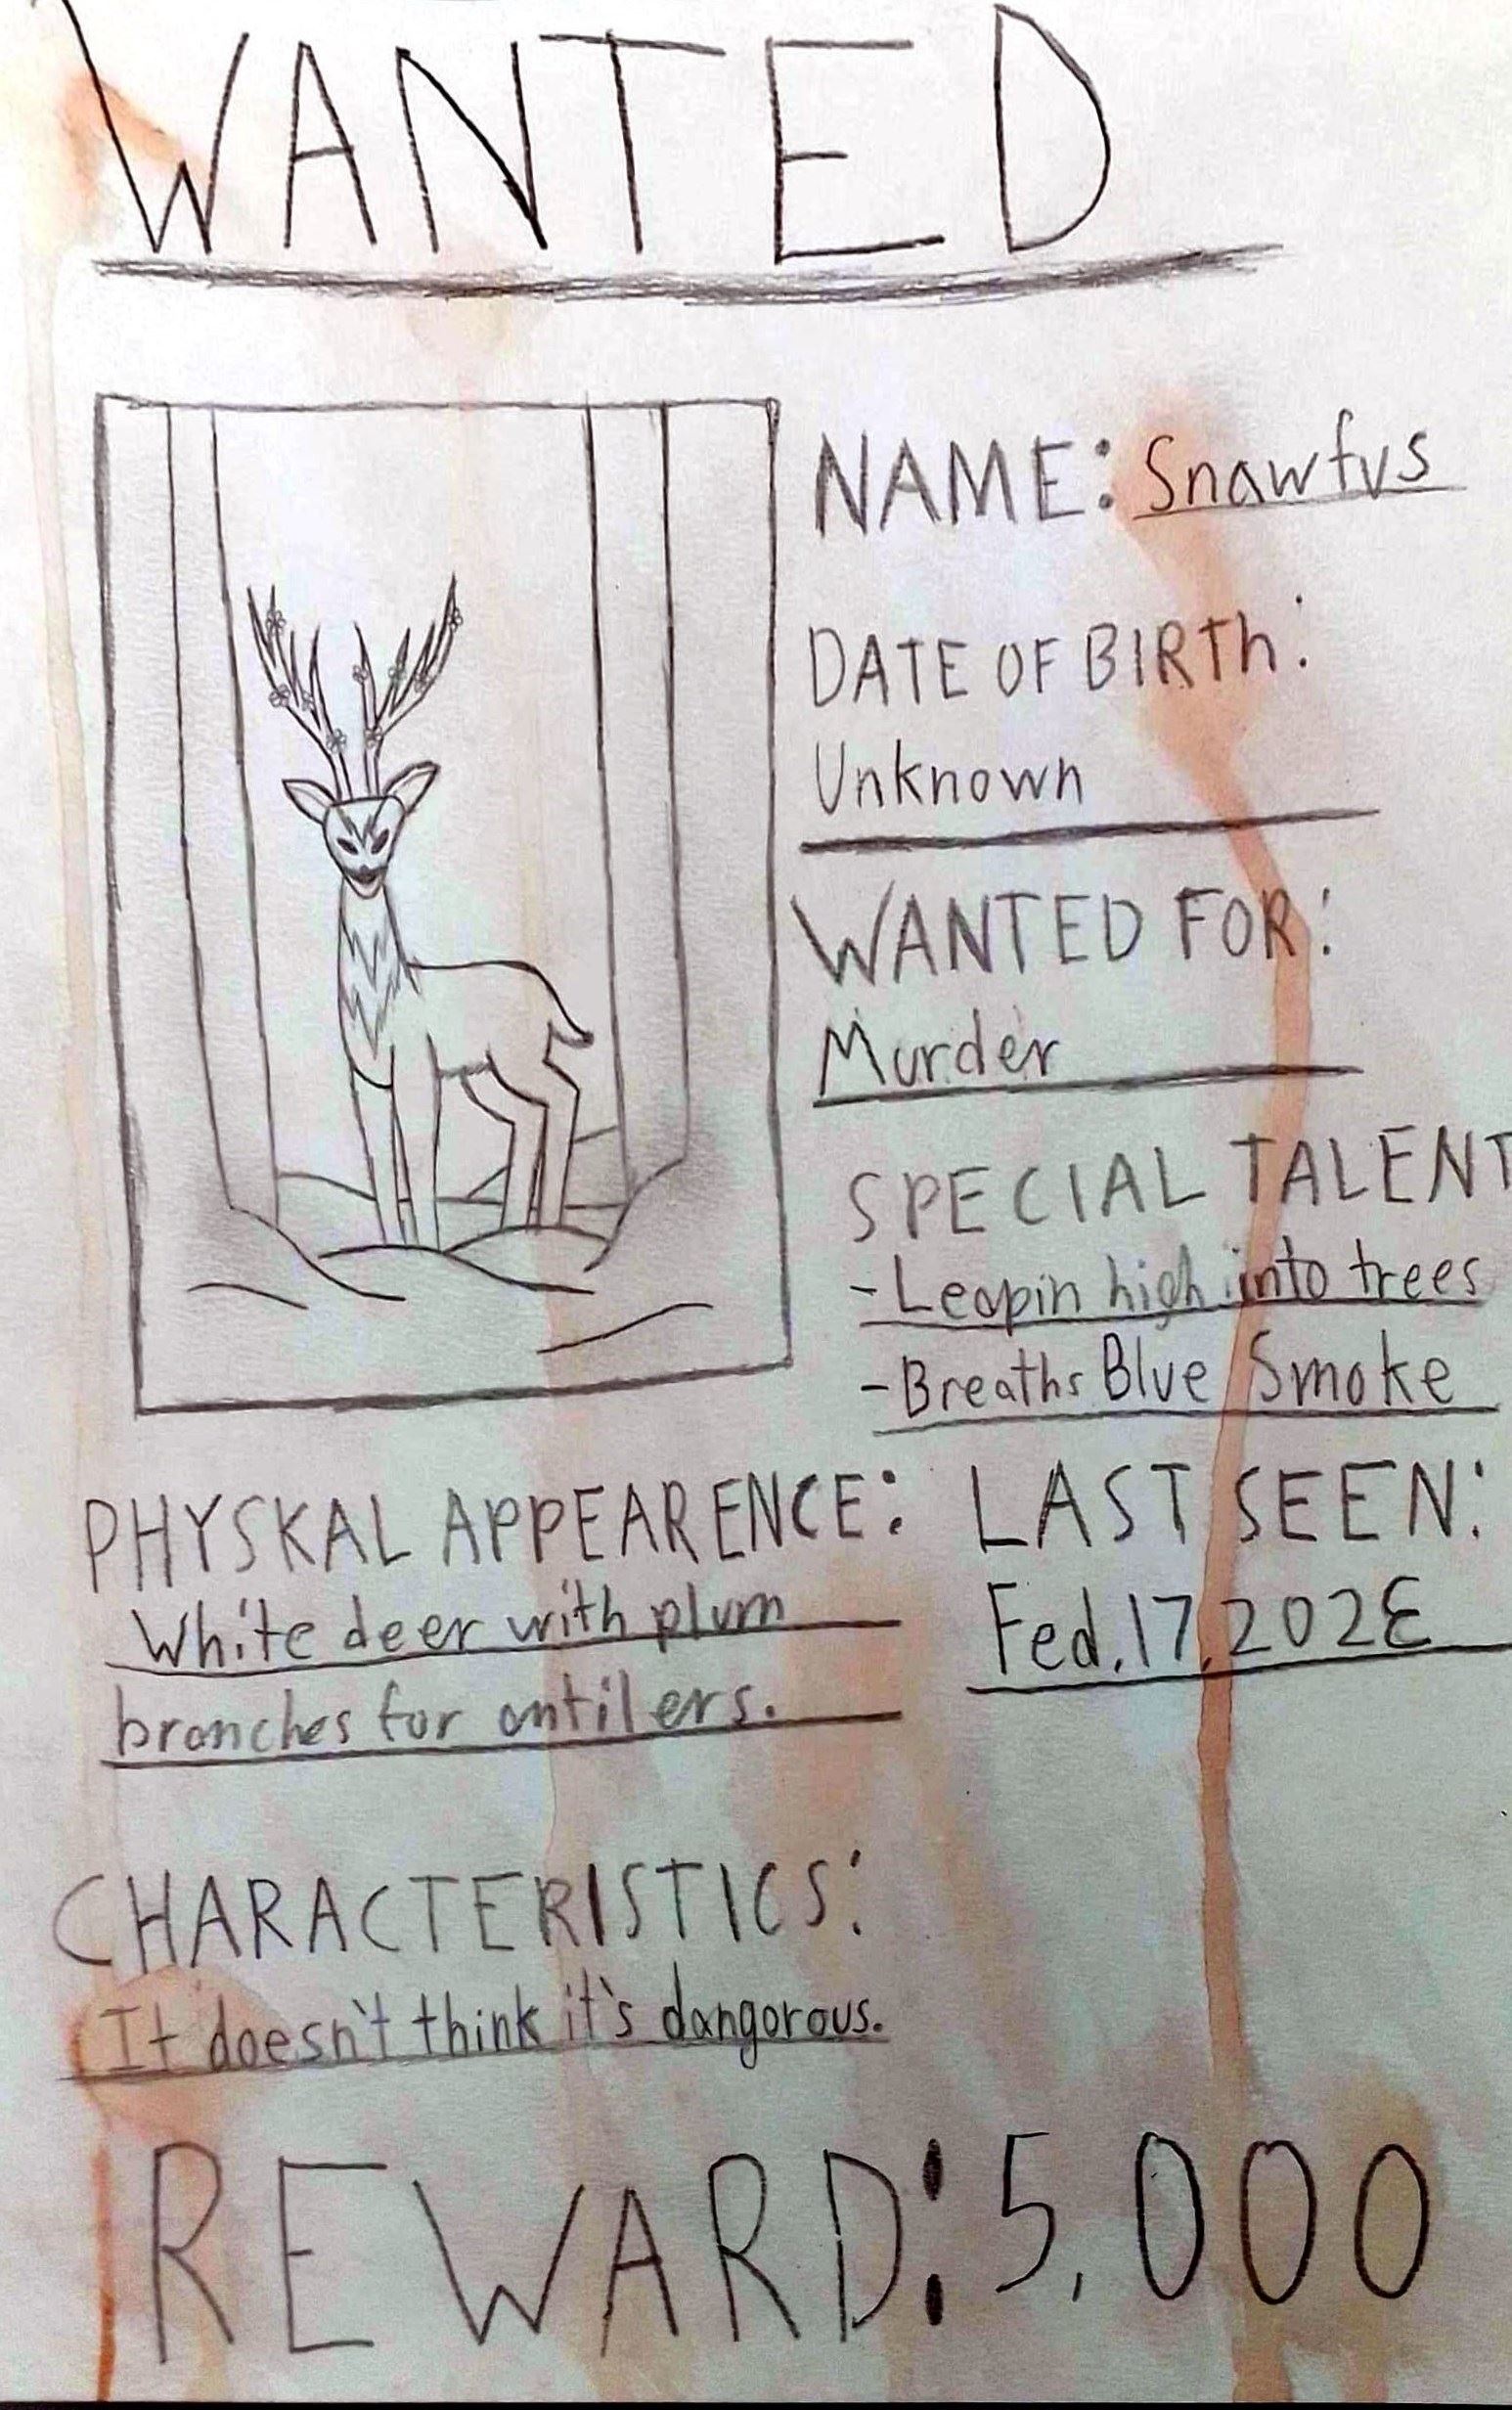 WANTED
NAME: Snawfus
DATE OF BIRTh:
Unknown
WANTED FOR:
Murder
SPECIAL TALENT
-Leapin high into trees
-Breaths Blue Smoke
PHYSKAL APPEARENCE:
White deer with plum
branches for antilers.
LAST SEEN:
Fed.17,202Ɛ
CHARACTERISTICS:
It doesn't think it's dangorous.
REWARD: 5,000